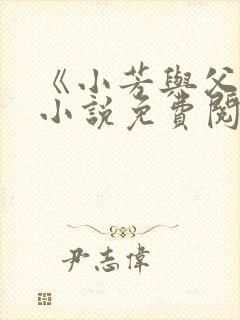 《小芳與父
小說免費閱
尹志偉